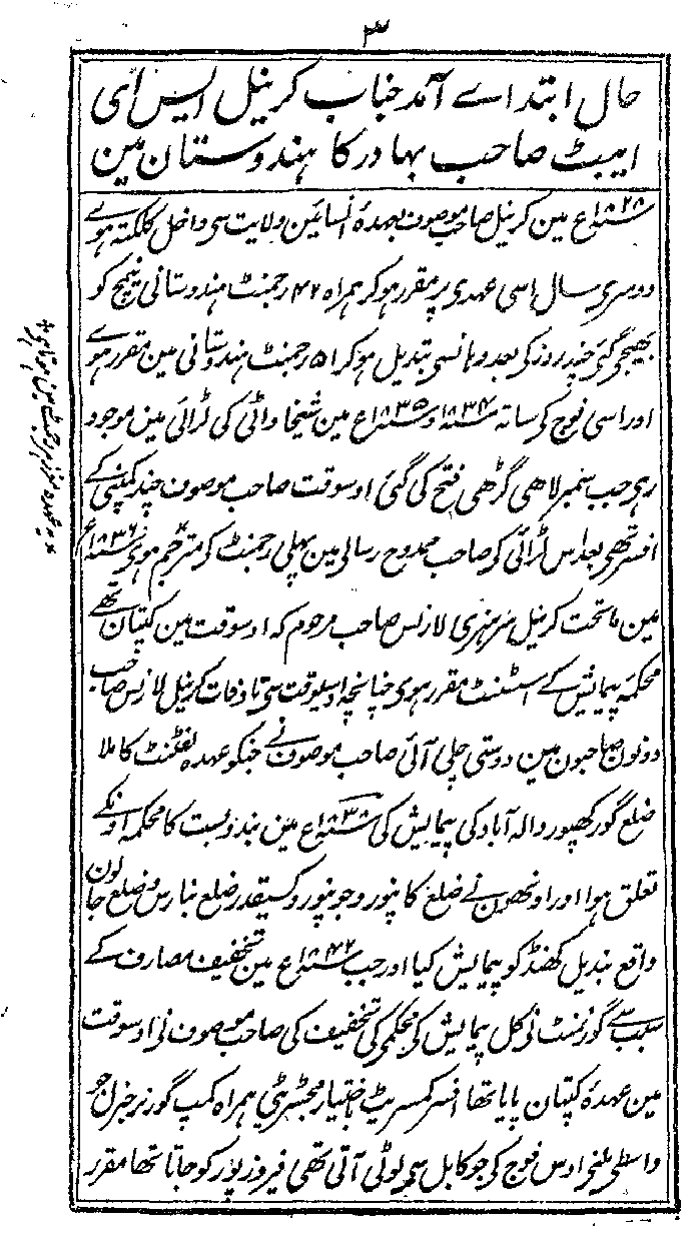 ۳
حال ابتداے آمد جناب کرنیل ایس ای
ایبٹ صاحب بہادر کا ہندوستان مین
سنہ ۱۸۲۸ع مین کرنیل صاحب موصوف بعہدۂ انسائین ولایت سی داخل کلکتہ ہوے
دوسری سال اسی عہدی پر مقرر ہو کر ہمراہ ۴۲ رجمنٹ ہندوستانی نیمچ کو
بھیجی گئی چند روز کی بعد وہانسی تبدیل ہو کر ۵۱ رجمنٹ ہندوستانی مین مقرر ہوے
اور اسی فوج کی ساتہ سنہ ۱۸۳۴ و سنہ ۱۸۳۵ع مین شیخاواٹی کی لڑائی مین موجود
رہی جب گڑھی فتح کی گئی اوسوقت صاحب موصوف چند کمپنی کے
افسر تھی بعد اس لڑائی کی صاحب ممدوح رسالی مین پہلی رجمنٹ کی مترجم ہوی سنہ ۱۸۳۶ع
مین ماتحت کرنیل سر ہنری لارنس صاحب مرحوم کہ اوسوقت مین کپتان تھے
محکمہ پیمائش کے اسسٹنٹ مقرر ہوی چنانچہ اوسیوقت سی تا وفات کرنیل لارنس صاحب
دونون صاحبون مین دوستی چلی آئی صاحب موصوف نے جنکو عہدہ لفٹنٹ کا ملا
ضلع گورکھپور و الہ آباد کی پیمایش کی سنہ ۱۸۳۸ع مین بندوبست کا محکمہ اونکے
تعلق ہوا اور اونھون نے ضلع کانپور و جونپور و کسیقدر ضلع بنارس و ضلع جالون
واقع بندیل کھنڈ کو پیمایش کیا اور جب سنہ ۱۸۴۲ع مین تخفیف مصارف کے
سبب سے گورنمنٹ نی کل پیمایش کی محکمی کی تخفیف کی صاحب موصوف نی اوسوقت
مین عہدۂ کپتان پایا تھا افسر کمسریٹ باختیار مجسٹریٹی ہمراہ کمپ گورنر جنرل جو
واسطی ملنی اوس فوج کی جو کابل سی لوٹی آتی تھی فیروزپور کو جاتا تھا مقرر